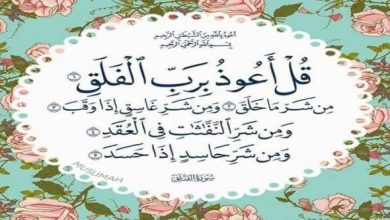 أَعُوذُ بِاللَّهِ مِنَ الشَّيْطَانِ الرَّجِيمِ
بِسْمِ اللَّهِ الرَّحْمَٰنِ الرَّحِيمِ
قُلْ أَعُوذُ بِرَبِّ ٱلْفَلَقِ ١
مِن شَرِّ مَا خَلَقَ ٢ وَمِن شَرِّ غَاسِقٍ إِذَا وَقَبَ ٣
وَمِن شَرِّ ٱلنَّفَّٰثَٰتِ فِي ٱلْعُقَدِ ٤
وَمِن شَرِّ حَاسِدٍ إِذَا حَسَدَ ٥
سُورَةُ الفَلَق
MUSLIMAH